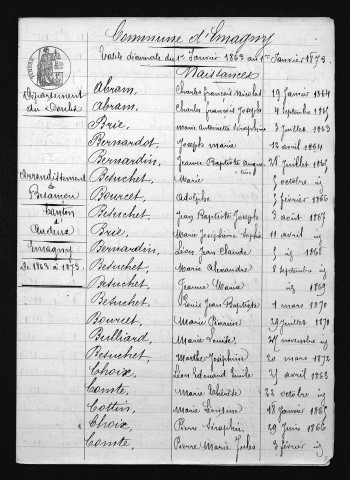 Commune d'Emagny
Table décennale du 1er Janvier 1863 au 1er Janvier 1873.
Naissances
Département
du Doubs
Arrondissement
de
Besançon
Canton
d'
Audeux
Emagny
De 1863 à 1873.
Abram, Charles françois Nicolas 19 janvier 1864
Abram, Charles francois Joseph 4 septembre 1865
Brie, Marie Antoinette Séraphine 3 juillet 1863
Bernardot, Joseph Marie 12 avril 1864
Bernardin, Jeanne Baptiste juillet 1865
Besuchet, Marie octobre id
Bourcet, Adolphe février 1866
Besuchet, Jean Baptiste Joseph 3 août 1867
Brie, Marie Joséphine Sophie 11 avril id
Bernardin, Léon Jean Claude id 1868
Besuchet, Marie Alexandre 8 septembre id
Besuchet, Jeanne Maria id 1869
Besuchet, Louis Jean Baptiste 1 mars 1870
Bourcet, Marie 29 juillet 1870
Bulliard, Marie Louise novembre id
Besuchet, Marthe Joséphine 20 mars 1872
Choix, Léon Edouard Emile avril 1863
Comte, Marie Thérèse 22 octobre id
Cottin, Marie 18 janvier 1865
Choix, Pierre Séraphin 29 juin 1866
Comte, Pierre Marie Jules 3 février id